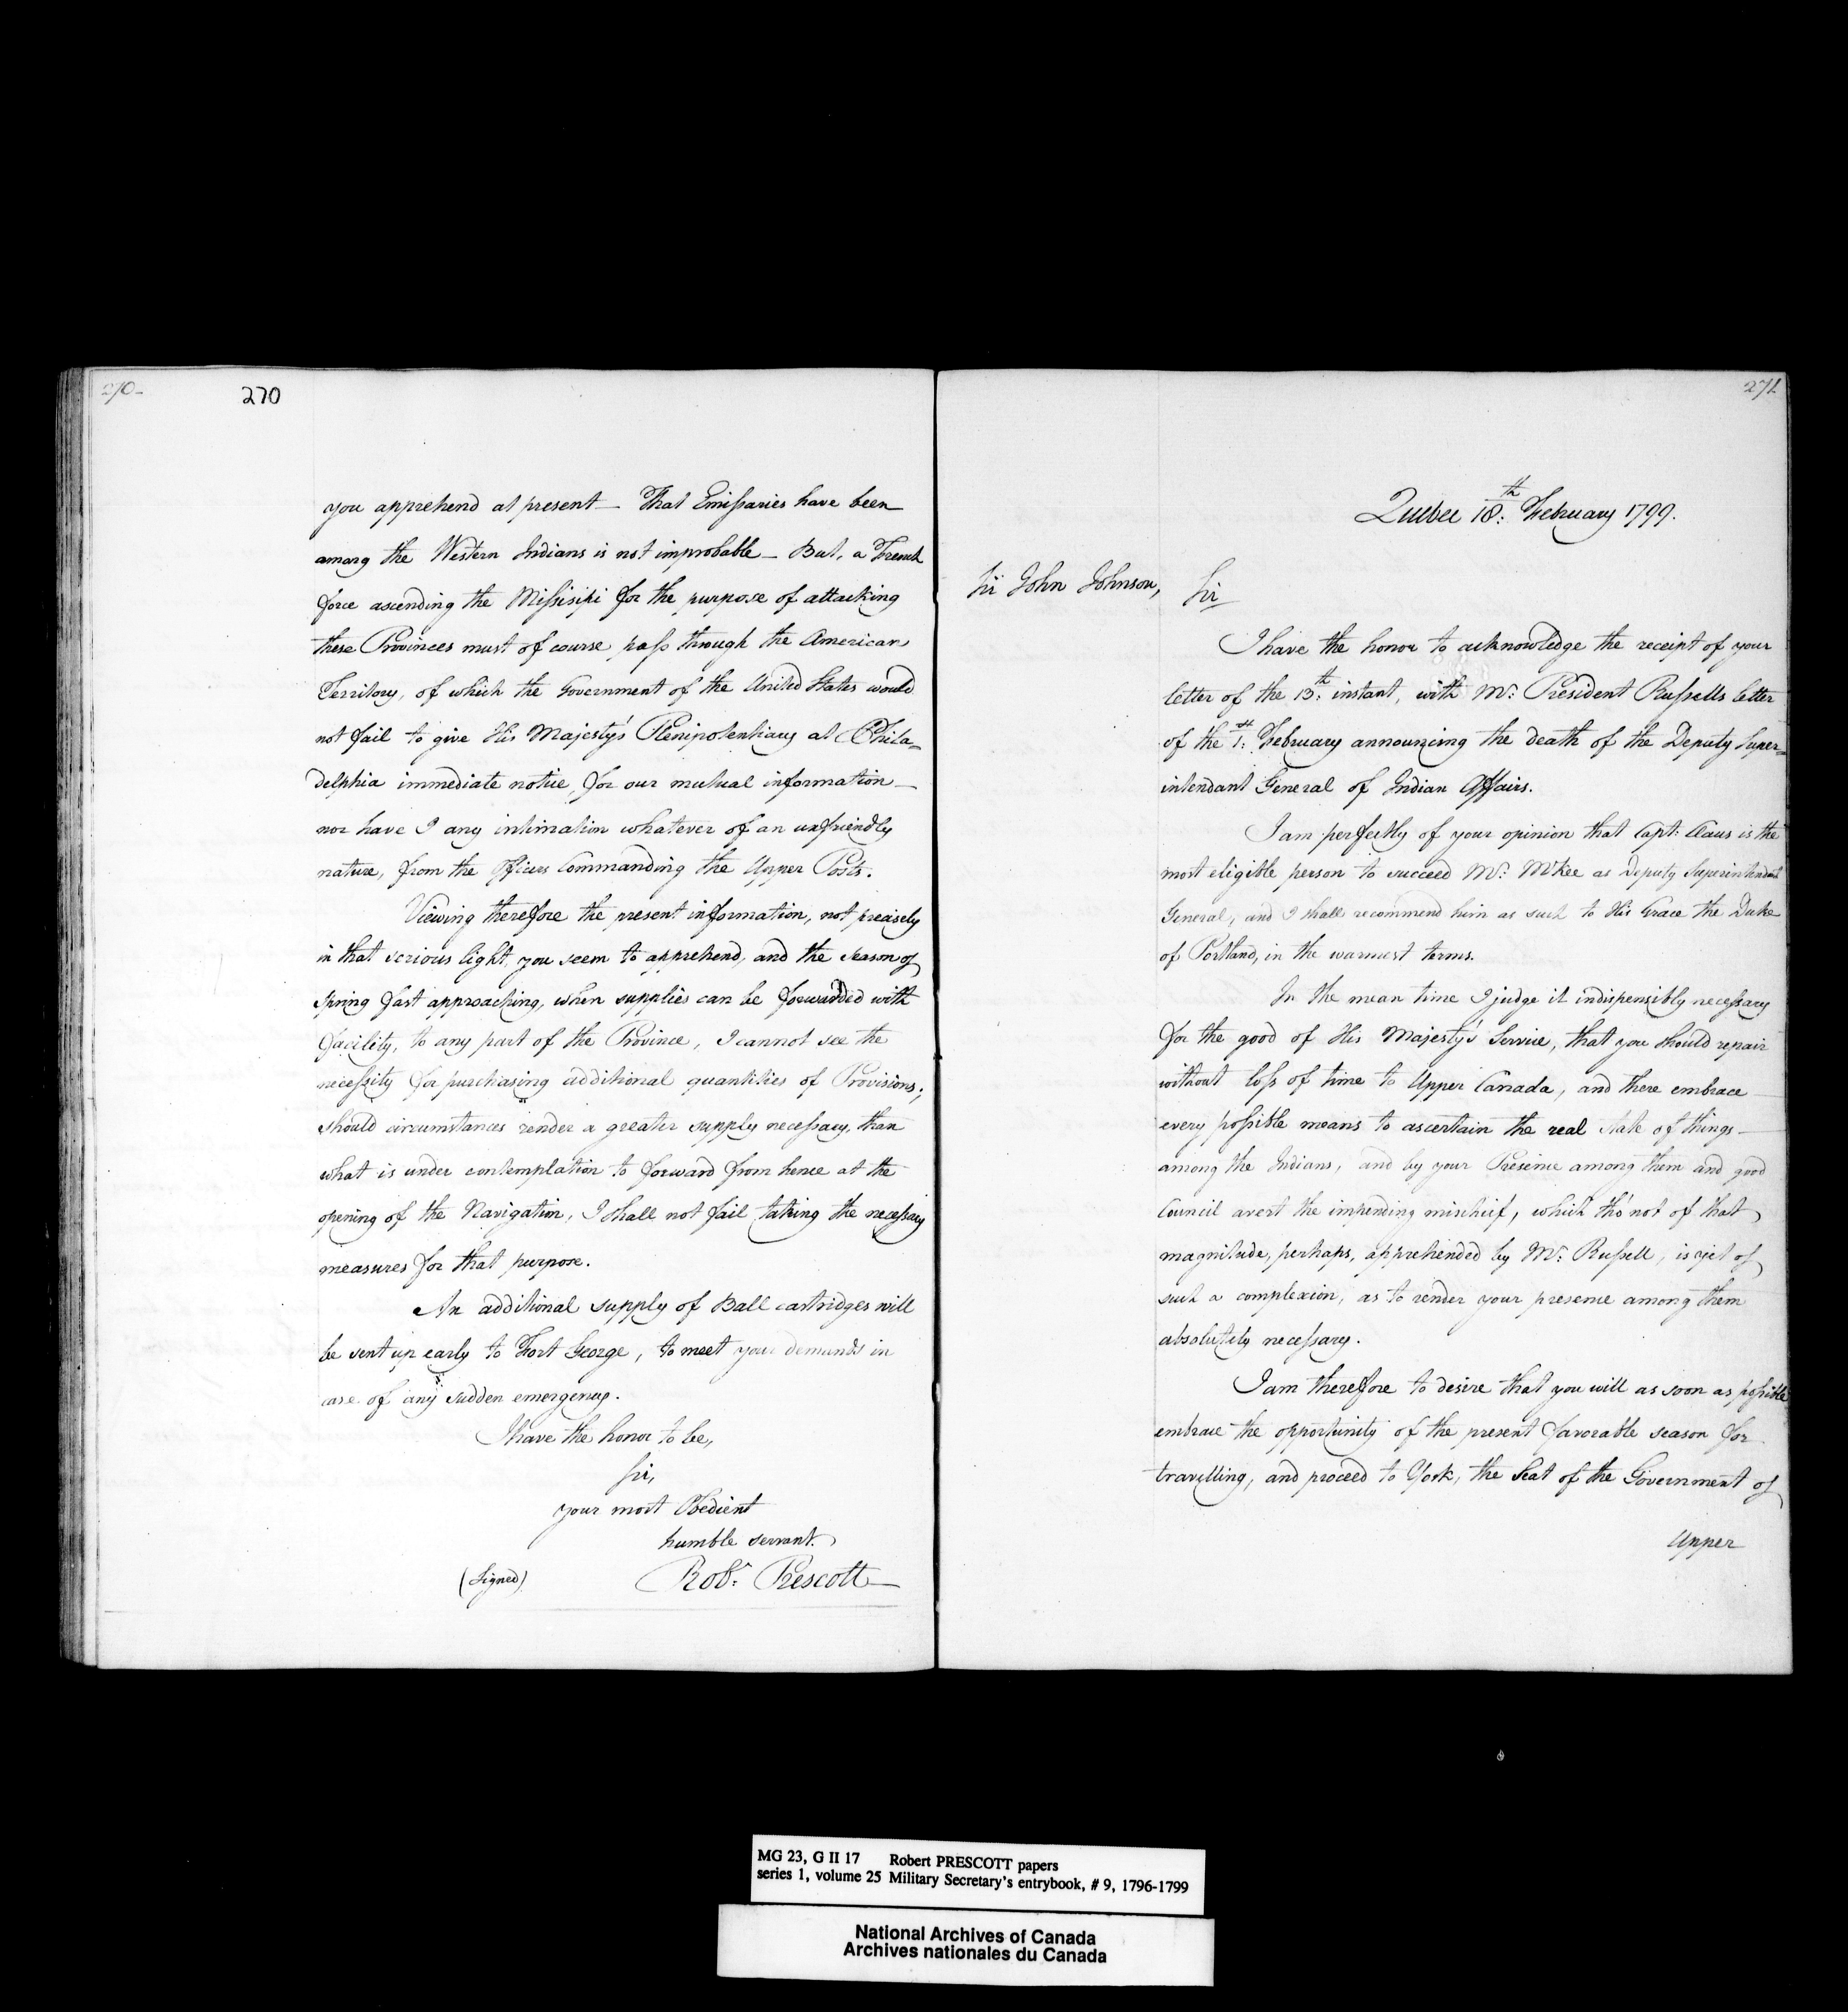 270-
270
you apprehend at present — That Emissaries have been
among the Western Indians is not improbable — But, a French
force ascending the Missisipi for the purpose of attacking
these Provinces must of course pass through the American
Territory, of which the Government of the United States would
not fail to give His Majesty's Plenipotentiary at Phila=
delphia immediate notice, for our mutual information —
nor have I any intimation whatever of an unfriendly
nature, from the Officers Commanding the Upper Posts.
Viewing therefore the present information, not precisely
in that serious light, you seem to apprehend, and the season of
Spring fast approaching, when supplies can be forwarded with
facility, to any part of the Province, I cannot see the
necessity for purchasing additional quantities of Provisions;
should circumstances render a greater supply necessary, than
what is under contemplation to forward from hence at the
opening of the Navigation, I shall not fail taking the necessary
measures for that purpose.
An additional supply of Ball cartridges will
be sent up early to Fort George, to meet your demands in
case of any sudden emergency.
I have the honor to be,
Sir,
your most Obedient
humble servant.
(Signed) Robt. Prescott —
271
Quebec 18th: February 1799.
Sir John Johnson,
Sir
I have the honor to acknowledge the receipt of your
letter of the 13th: instant, with Mr: President Russells letter
of the 1st: February announcing the death of the Deputy Super=
intendant General of Indian Affairs.
I am perfectly of your opinion that Capt: Claus is the
most eligible person to succeed Mr: McKee as Deputy Superintendant
General, and I shall recommend him as such to His Grace the Duke
of Portland, in the warmest terms.
In the mean time I judge it indispensibly necessary
for the good of His Majesty's Service, that you should repair
without loss of time to Upper Canada, and there embrace
every possible means to ascertain the real state of things —
among the Indians, and by your Presence among them and good
Council avert the impending mischief, which tho' not of that
magnitude, perhaps, apprehended by Mr: Russell, is yet of
such a complexion, as to render your presence among them
absolutely necessary.
I am therefore to desire that you will as soon as possible
embrace the opportunity of the present favorable season for
travelling, and proceed to York, the Seat of the Government of
Upper
MG 23, G II 17 Robert PRESCOTT papers
series 1, volume 25 Military Secretary's entrybook, # 9, 1796-1799
National Archives of Canada
Archives nationales du Canada